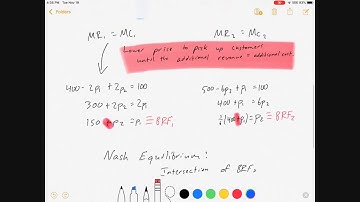 6:02 PM Tue Nov 19
Folders
MR₁ = MC₁
MR₂ = MC₂
Lower price to pick up customers
until the additional revenue = additional cost.
400 - 2p₁ + 2p₂ = 100
500 - 6p₂ + p₁ = 100
300 + 2p₂ = 2p₁
400 + p₁ = 6p₂
150 + p₂ = p₁ ≡ BRF₁
(400 + p₁) = p₂ ≡ BRF₂
Nash Equilibrium:
Intersection of BRFs